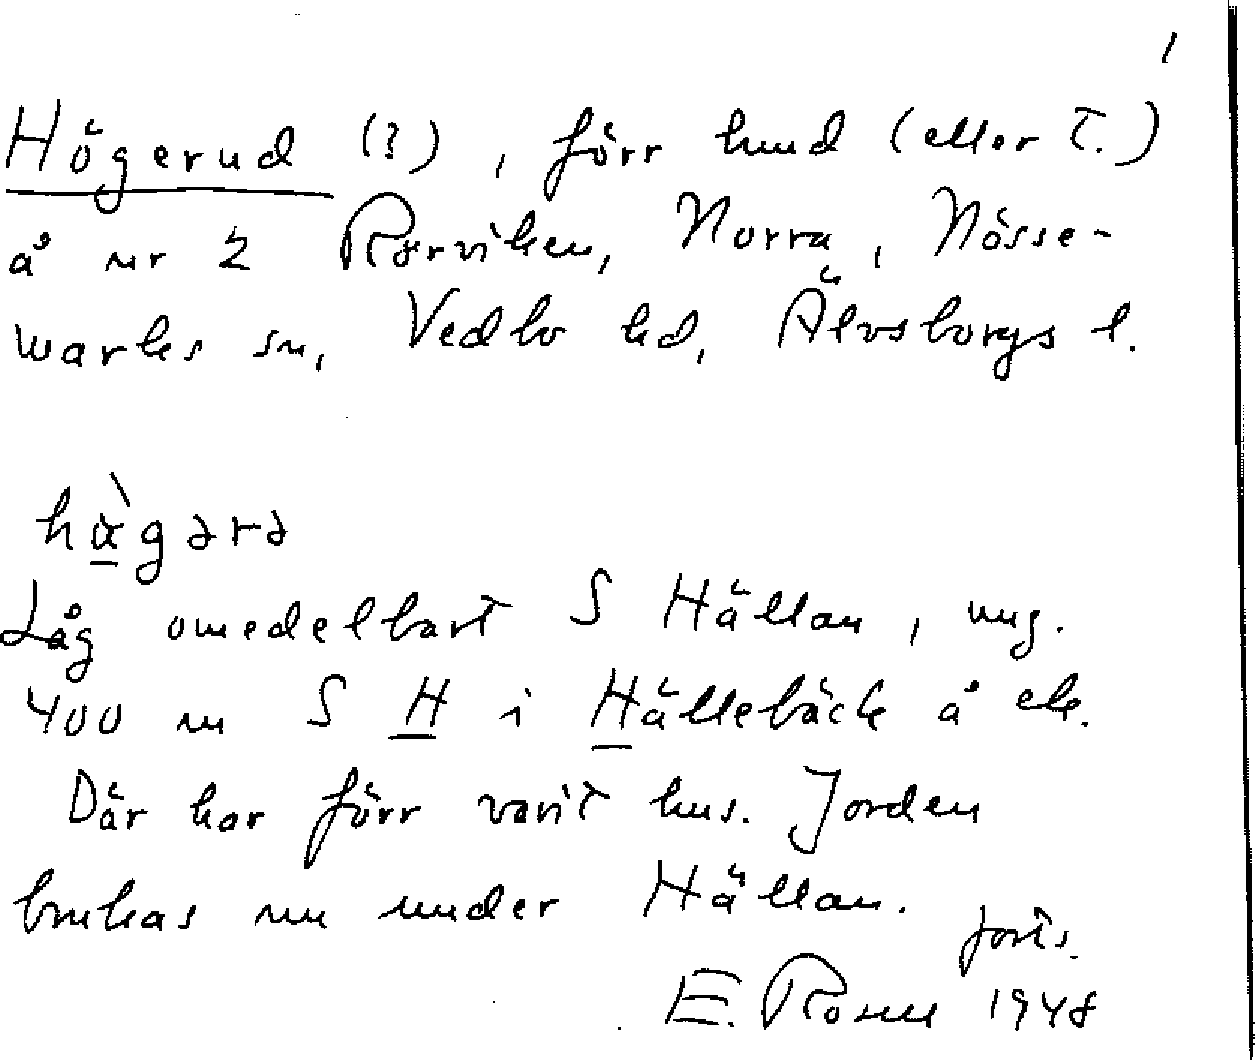 1
Högerud (?), förr hmd (eller t.)
å nr 2 Rörviken, Norra, Nösse-
marks sn, Vedbo hd, Älvsborgs l.
hὰgərə
Låg omedelbart S Hällan, ung.
400 m S H i Hällebäck å ek.
Där har förr varit hus. Jorden
brukas nu under Hällan.
forts.
E. Rosell 1948